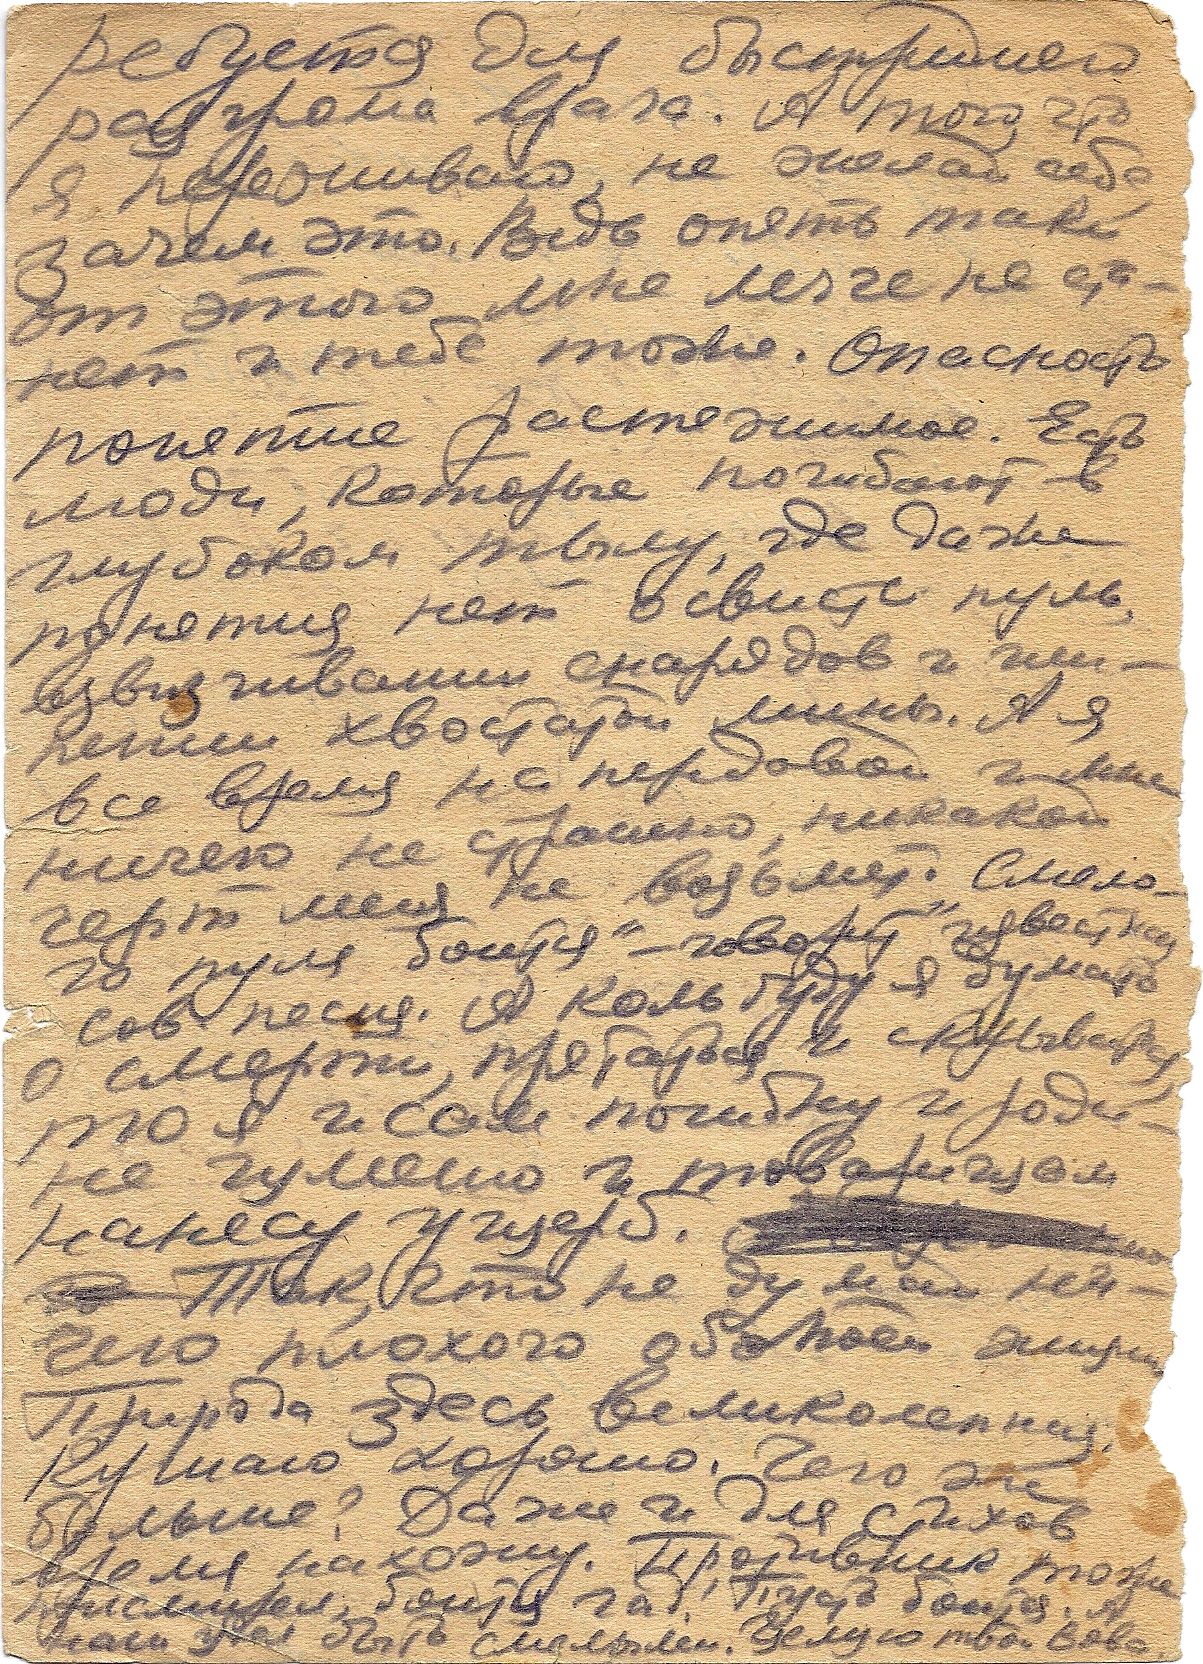 ребуется для быстрейшего
разгрома врага. А того что
я переживаю, не желай себе
зачем это. Ведь опять таки
от этого мне легче не ста-
нет и тебе тоже. Опасность
понятие растяжимое. Есть
люди, которые погибают в
глубоком тылу, где даже
понятия нет о свисте пуль,
взвизгивании снарядов и ши-
пении хвостатой мины. А я
все время на передовой и мне
ничего не страшно, никакой
черт меня не возьмет. Смело-
го пуля боится" – говорит известная
сов. песня. А коль буду я думать
о смерти, прятаться и
то я и сам погибну и роди-
не и товарищам
нанесу ущерб.
Так, что не думай ни-
чего плохого о моей жизни
Природа здесь великолепная,
Кушаю хорошо. Чего же
больше? Даже и для стихов
время нахожу. Противник тоже
присмирел, боится гад. Пусть боится. А
наш удел быть смелыми. Целую твой Вова